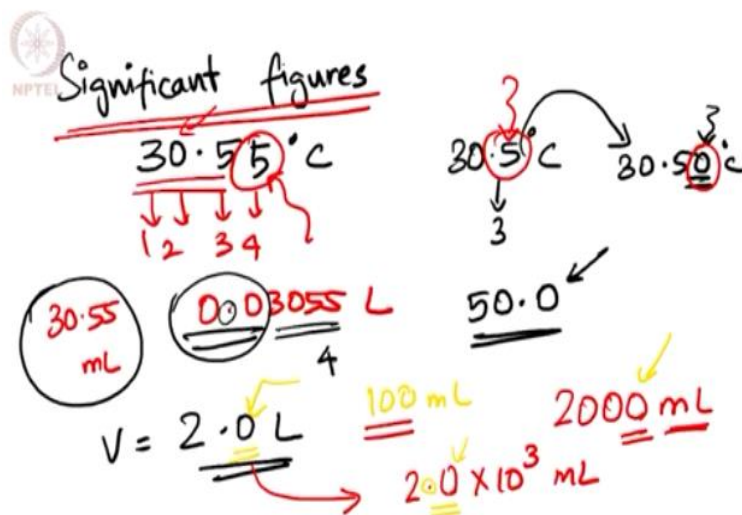 NPTEL
Significant figures
30.55°C
1 2 3 4
30.5°C
3
30.50°C
30.55 mL
0.03055 L
4
50.0
V = 2.0 L
100 mL
2000 mL
2.0 × 10³ mL